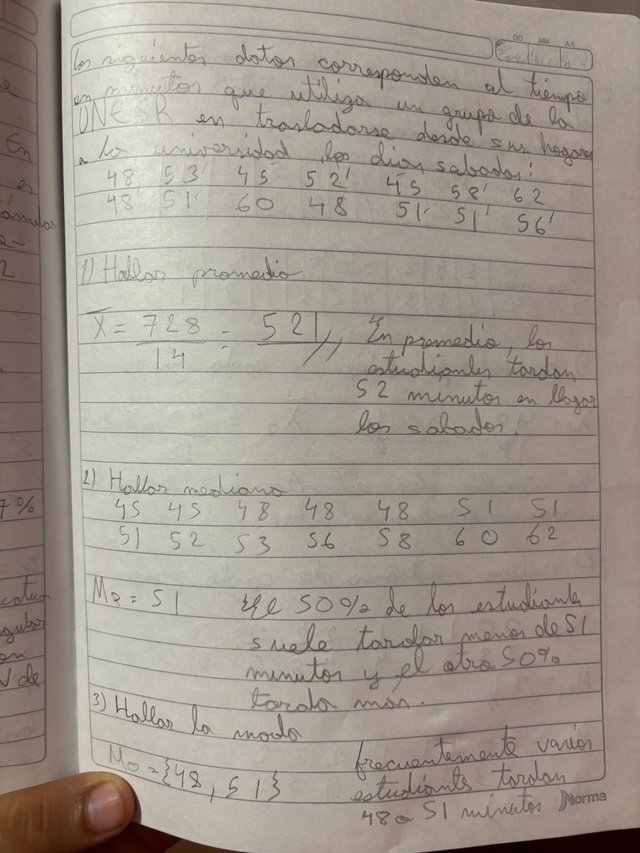 DD MM AA
Los siguientes datos corresponden al tiempo
en minutos que utiliza un grupo de la
UNESR en trasladarse desde sus hogares
a la universidad los dias sabados:
48 53 45 52 45 58 62
48 51 60 48 51 51 56
1) Hallar promedio
X̄ = 728 = 52 //, En promedio, los
14 estudiantes tardan
52 minutos en llegar
los sabados.
2) Hallar mediana
45 45 48 48 48 51 51
51 52 53 56 58 60 62
Me = 51 el 50% de los estudiante
suele tardar menos de 51
minutos y el otro 50%
tarda mas.
3) Hallar la moda
Mo = {48, 51} frecuentemente varios
estudiante tardan
48 o 51 minutos
Norma
En
2
7%